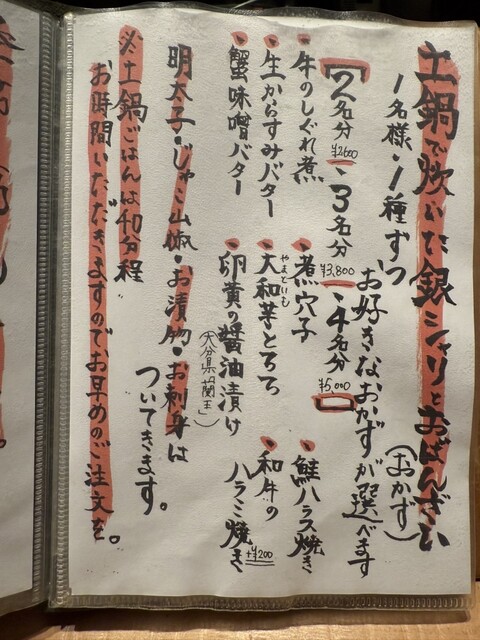 土鍋で炊いた銀シャリとおばんざい
(おかず)
1名様・1種ずつ
お好きなおかずが選べます
2名分
¥2600
・3名分
¥3,800
・4名分
¥5,000
・牛のしぐれ煮
・煮穴子
・鮭ハラス焼き
・生からすみバター
・大和芋とろろ
やまといも
・和牛のハラミ焼き
+¥200
・蟹味噌バター
・卵黄の醤油漬け
(大分県「蘭王」)
明太子・じゃこ山椒・お漬物・お刺身は
ついてきます。
※土鍋ごはんは40分程
お時間いただきますのでお早めのご注文を。